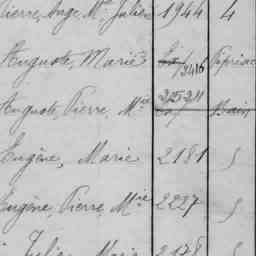 Pierre, Ange, Mie Julien 1944 4
Auguste, Marie 3416
Auguste, Pierre, Mie 325211 Bain
Eugène, Marie 2181
Eugène, Pierre, Mie 2227
Julie, Marie 2178